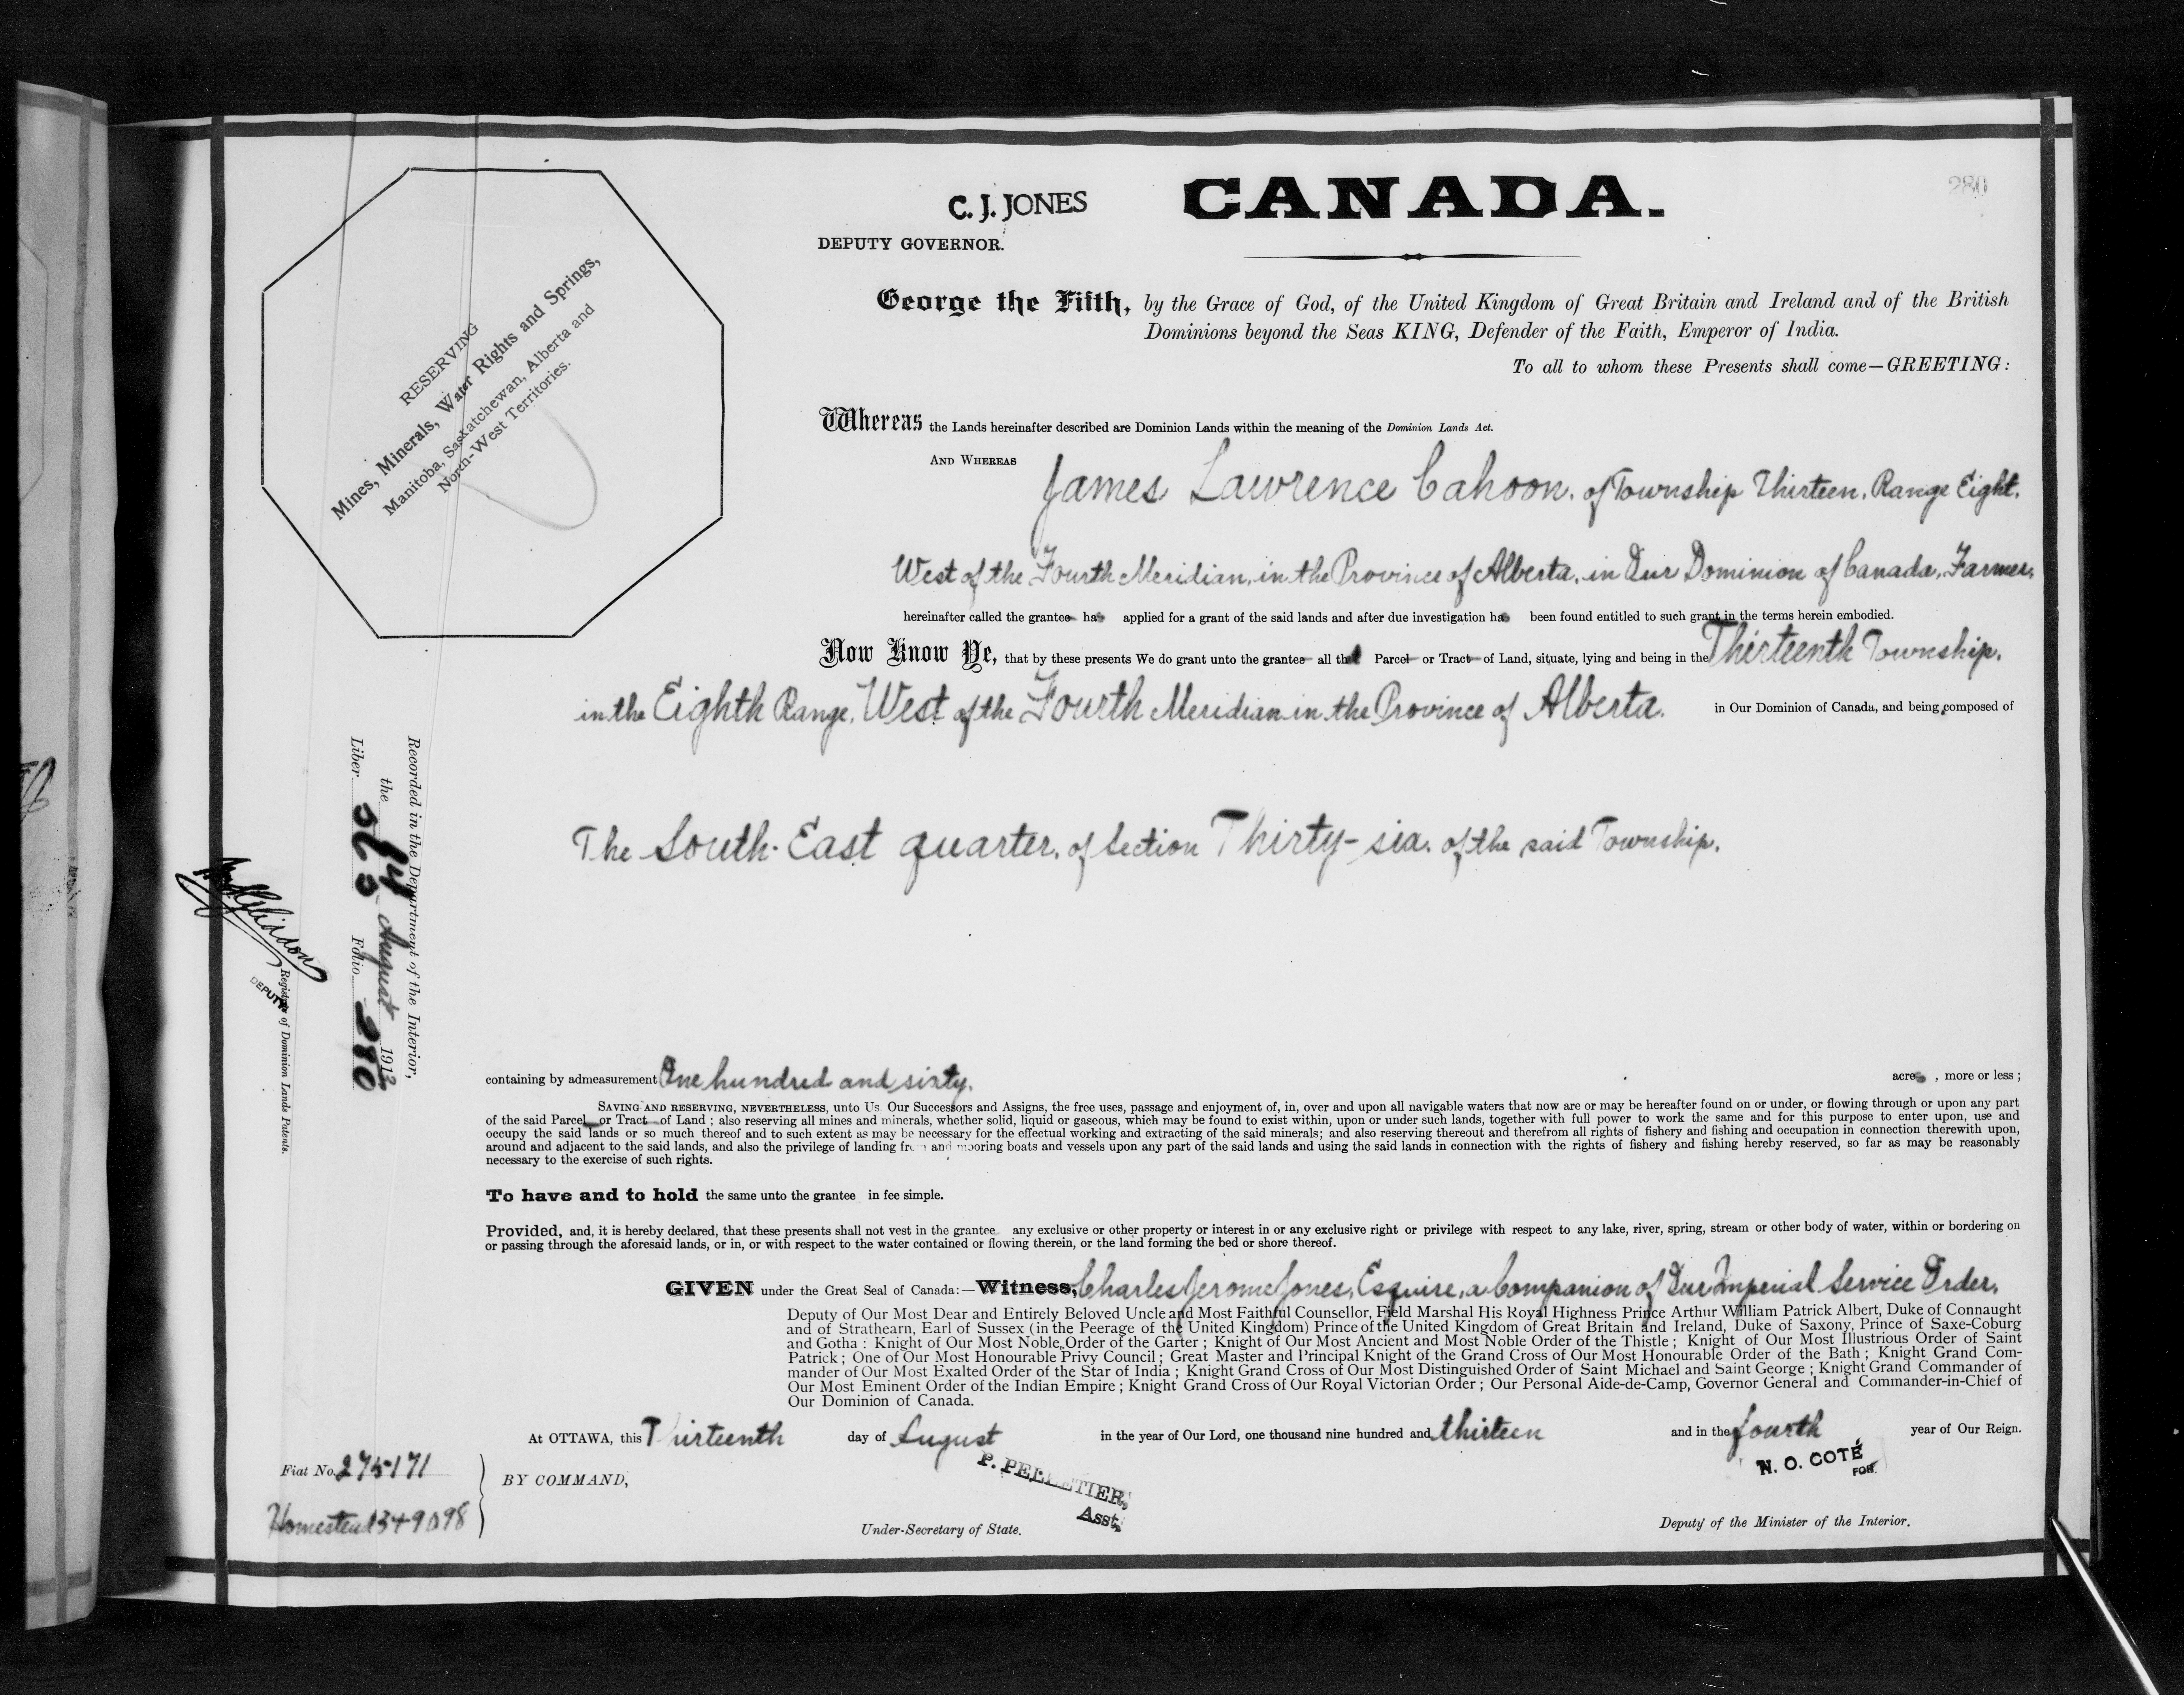 280
C. J. JONES
CANADA.
DEPUTY GOVERNOR.
George the Fifth, by the Grace of God, of the United Kingdom of Great Britain and Ireland and of the British
Dominions beyond the Seas KING, Defender of the Faith, Emperor of India.
To all to whom these Presents shall come—GREETING:
RESERVING
Mines, Minerals, Water Rights and Springs,
Manitoba, Saskatchewan, Alberta and
North-West Territories.
Whereas the Lands hereinafter described are Dominion Lands within the meaning of the Dominion Lands Act.
AND WHEREAS James Lawrence Cahoon, of Township Thirteen, Range Eight,
West of the Fourth Meridian, in the Province of Alberta, in Our Dominion of Canada, Farmer,
hereinafter called the grantee has applied for a grant of the said lands and after due investigation has been found entitled to such grant in the terms herein embodied.
Now Know Ye, that by these presents We do grant unto the grantee all that Parcel or Tract of Land, situate, lying and being in the Thirteenth Township,
in the Eighth Range, West of the Fourth Meridian in the Province of Alberta, in Our Dominion of Canada, and being composed of
The South-East quarter, of Section Thirty-six, of the said Township.
Recorded in the Department of the Interior,
the August 1913
Liber Folio 280
Registrar of Dominion Lands Patents.
DEPUTY
containing by admeasurement One hundred and sixty, acres , more or less ;
SAVING AND RESERVING, NEVERTHELESS, unto Us Our Successors and Assigns, the free uses, passage and enjoyment of, in, over and upon all navigable waters that now are or may be hereafter found on or under, or flowing through or upon any part
of the said Parcel or Tract of Land ; also reserving all mines and minerals, whether solid, liquid or gaseous, which may be found to exist within, upon or under such lands, together with full power to work the same and for this purpose to enter upon, use and
occupy the said lands or so much thereof and to such extent as may be necessary for the effectual working and extracting of the said minerals; and also reserving thereout and therefrom all rights of fishery and fishing and occupation in connection therewith upon,
around and adjacent to the said lands, and also the privilege of landing from and mooring boats and vessels upon any part of the said lands and using the said lands in connection with the rights of fishery and fishing hereby reserved, so far as may be reasonably
necessary to the exercise of such rights.
To have and to hold the same unto the grantee in fee simple.
Provided, and, it is hereby declared, that these presents shall not vest in the grantee any exclusive or other property or interest in or any exclusive right or privilege with respect to any lake, river, spring, stream or other body of water, within or bordering on
or passing through the aforesaid lands, or in, or with respect to the water contained or flowing therein, or the land forming the bed or shore thereof.
GIVEN under the Great Seal of Canada:—Witness, Charles Jerome Jones, Esquire, a Companion of Our Imperial Service Order,
Deputy of Our Most Dear and Entirely Beloved Uncle and Most Faithful Counsellor, Field Marshal His Royal Highness Prince Arthur William Patrick Albert, Duke of Connaught
and of Strathearn, Earl of Sussex (in the Peerage of the United Kingdom) Prince of the United Kingdom of Great Britain and Ireland, Duke of Saxony, Prince of Saxe-Coburg
and Gotha : Knight of Our Most Noble Order of the Garter ; Knight of Our Most Ancient and Most Noble Order of the Thistle ; Knight of Our Most Illustrious Order of Saint
Patrick ; One of Our Most Honourable Privy Council ; Great Master and Principal Knight of the Grand Cross of Our Most Honourable Order of the Bath ; Knight Grand Com-
mander of Our Most Exalted Order of the Star of India ; Knight Grand Cross of Our Most Distinguished Order of Saint Michael and Saint George ; Knight Grand Commander of
Our Most Eminent Order of the Indian Empire ; Knight Grand Cross of Our Royal Victorian Order ; Our Personal Aide-de-Camp, Governor General and Commander-in-Chief of
Our Dominion of Canada.
At OTTAWA, this Thirteenth day of August in the year of Our Lord, one thousand nine hundred and thirteen and in the fourth year of Our Reign.
Fiat No. 275171
BY COMMAND,
P. PELLETIER,
Asst.
N. O. COTÉ
FOR.
Homestead 349098
Under-Secretary of State.
Deputy of the Minister of the Interior.